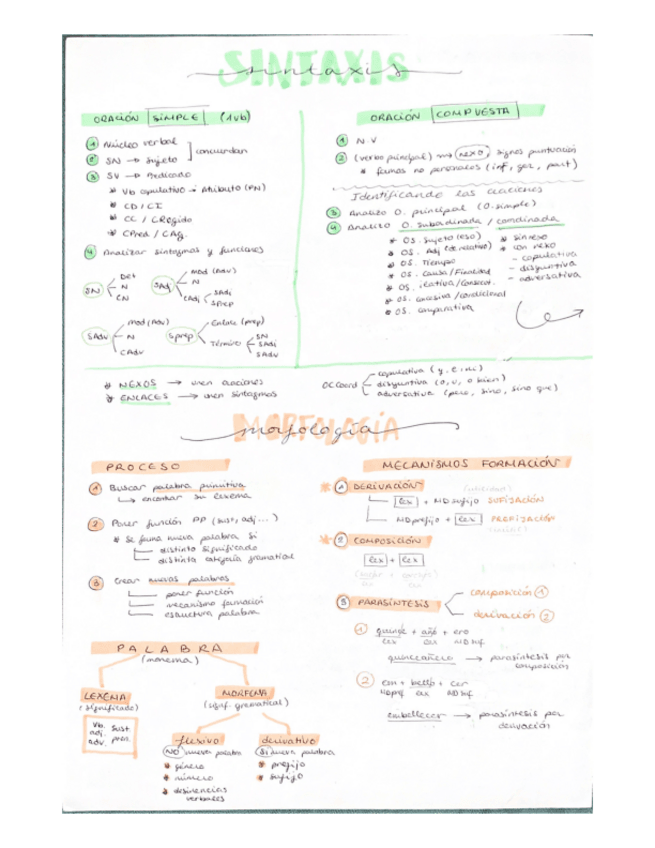 SINTAXIS
sintaxis
ORACIÓN SIMPLE (1vb)
1 Núcleo verbal
2 SN → Sujeto
concuerdan
3 SV → Predicado
* Vb copulativo → Atributo (PN)
* CD / CI
* CC / CRegido
* CPred / CAg.
4 Analizar sintagmas y funciones
SN
Det
N
CN
SAdj
mod (Adv)
N
CAdj
SAdj
SPrep
SAdv
mod (Adv)
N
CAdv
Sprep
Enlace (prep)
Término
SN
SAdj
SAdv
ORACIÓN COMPUESTA
1 N.V
2 (verbo principal) → nexo, signos puntuación
* formas no personales (inf, ger, part)
Identificando las oraciones
3 Analizo O. principal (O. simple)
4 Analizo O. subordinada / coordinada
* OS. Sujeto (eso)
* OS. Adj (de relativo)
* OS. Tiempo
* OS. Causa / Finalidad
* OS. ilativa / Consecut.
* OS. concesiva / condicional
* OS. comparativa
* sin nexo
* con nexo
- copulativa
- disyuntiva
- adversativa
* NEXOS → unen oraciones
* ENLACES → unen sintagmas
OC Coord
copulativa (y, e, ni)
disyuntiva (o, u, o bien)
adversativa (pero, sino, sino que)
MORFOLOGÍA
morfología
PROCESO
1 Buscar palabra primitiva
↳ encontrar su lexema
2 Poner función PP (sust, adj...)
* Se forma nueva palabra si
distinto significado
distinta categoría gramatical
3 Crear nuevas palabras
poner función
mecanismo formación
estructura palabra
PALABRA
(monema)
LEXEMA
(significado)
Vb. sust.
adj.
adv. pron.
MORFEMA
(signf. gramatical)
flexivo
NO nueva palabra
* género
* número
* desinencias verbales
derivativo
SI nueva palabra
* prefijo
* sufijo
MECANISMOS FORMACIÓN
* 1 DERIVACIÓN
lex + MD sufijo SUFIJACIÓN
MD prefijo + lex PREFIJACIÓN
* 2 COMPOSICIÓN
lex + lex
3 PARASÍNTESIS
composición 1
derivación 2
1 quince + año + ero
lex lex MD suf
quinceañero → parasíntesis por composición
2 em + bello + cer
MD pref lex MD suf
embellecer → parasíntesis por derivación